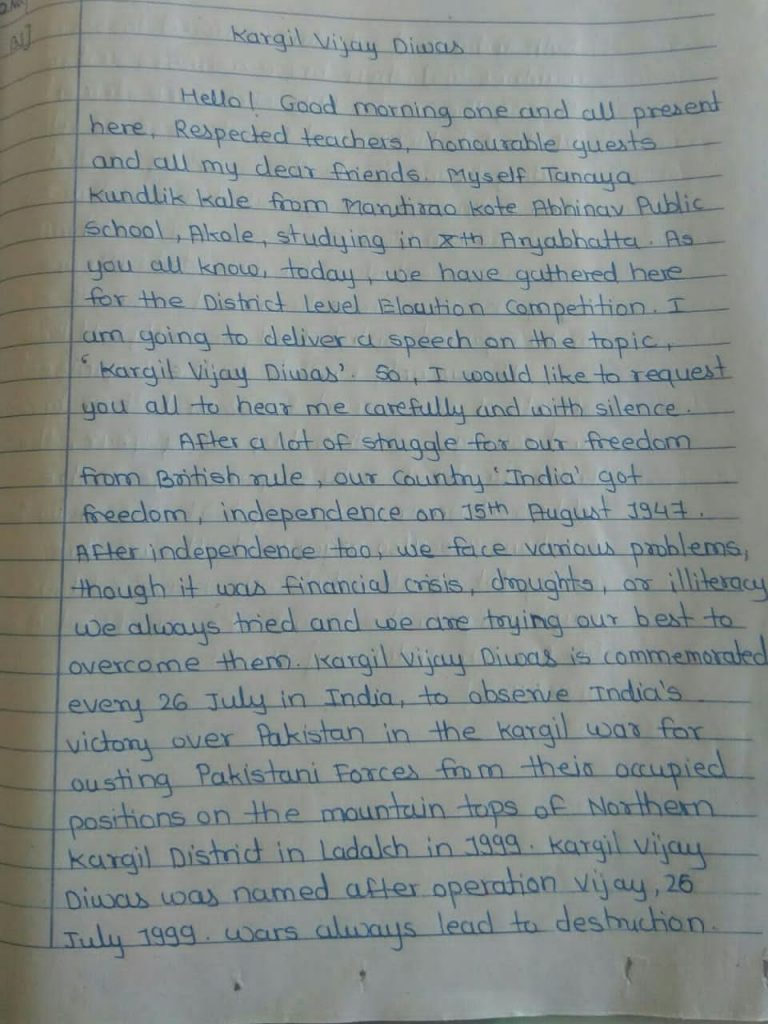 Kargil Vijay Diwas
Hello! Good morning one and all present
here, Respected teachers, honourable guests
and all my dear friends. Myself Tanaya
Kundlik Kale from Marutirao Kote Abhinav Public
School, Akole, studying in Xth Aryabhatta. As
you all know, today, we have gathered here
for the District level Elocution Competition. I
am going to deliver a speech on the topic,
'Kargil Vijay Diwas'. So, I would like to request
you all to hear me carefully and with silence.
After a lot of struggle for our freedom
from British rule, our country 'India' got
freedom, independence on 15th August 1947.
After independence too, we face various problems,
though it was financial crisis, droughts, or illiteracy
We always tried and we are trying our best to
overcome them. Kargil Vijay Diwas is commemorated
every 26 July in India, to observe India's
victory over Pakistan in the Kargil war for
ousting Pakistani Forces from their occupied
positions on the mountain tops of Northern
Kargil District in Ladakh in 1999. Kargil Vijay
Diwas was named after operation Vijay, 26
July 1999. Wars always lead to destruction.